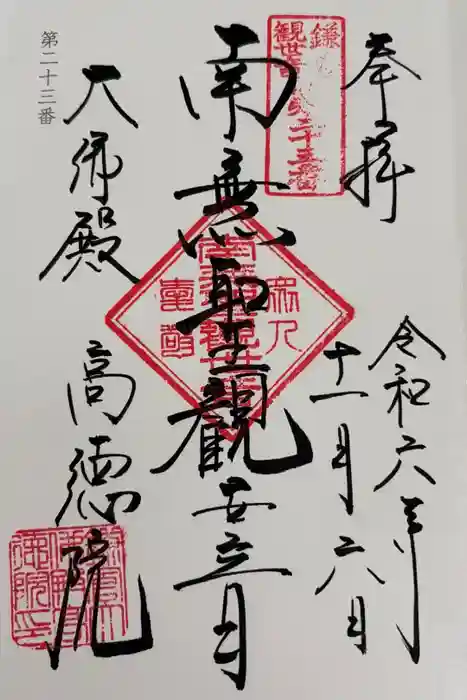 奉拝
令和六年
十一月六日
鎌
観世音第二十三番
南無聖観世音
大佛殿
高徳院
第二十三番